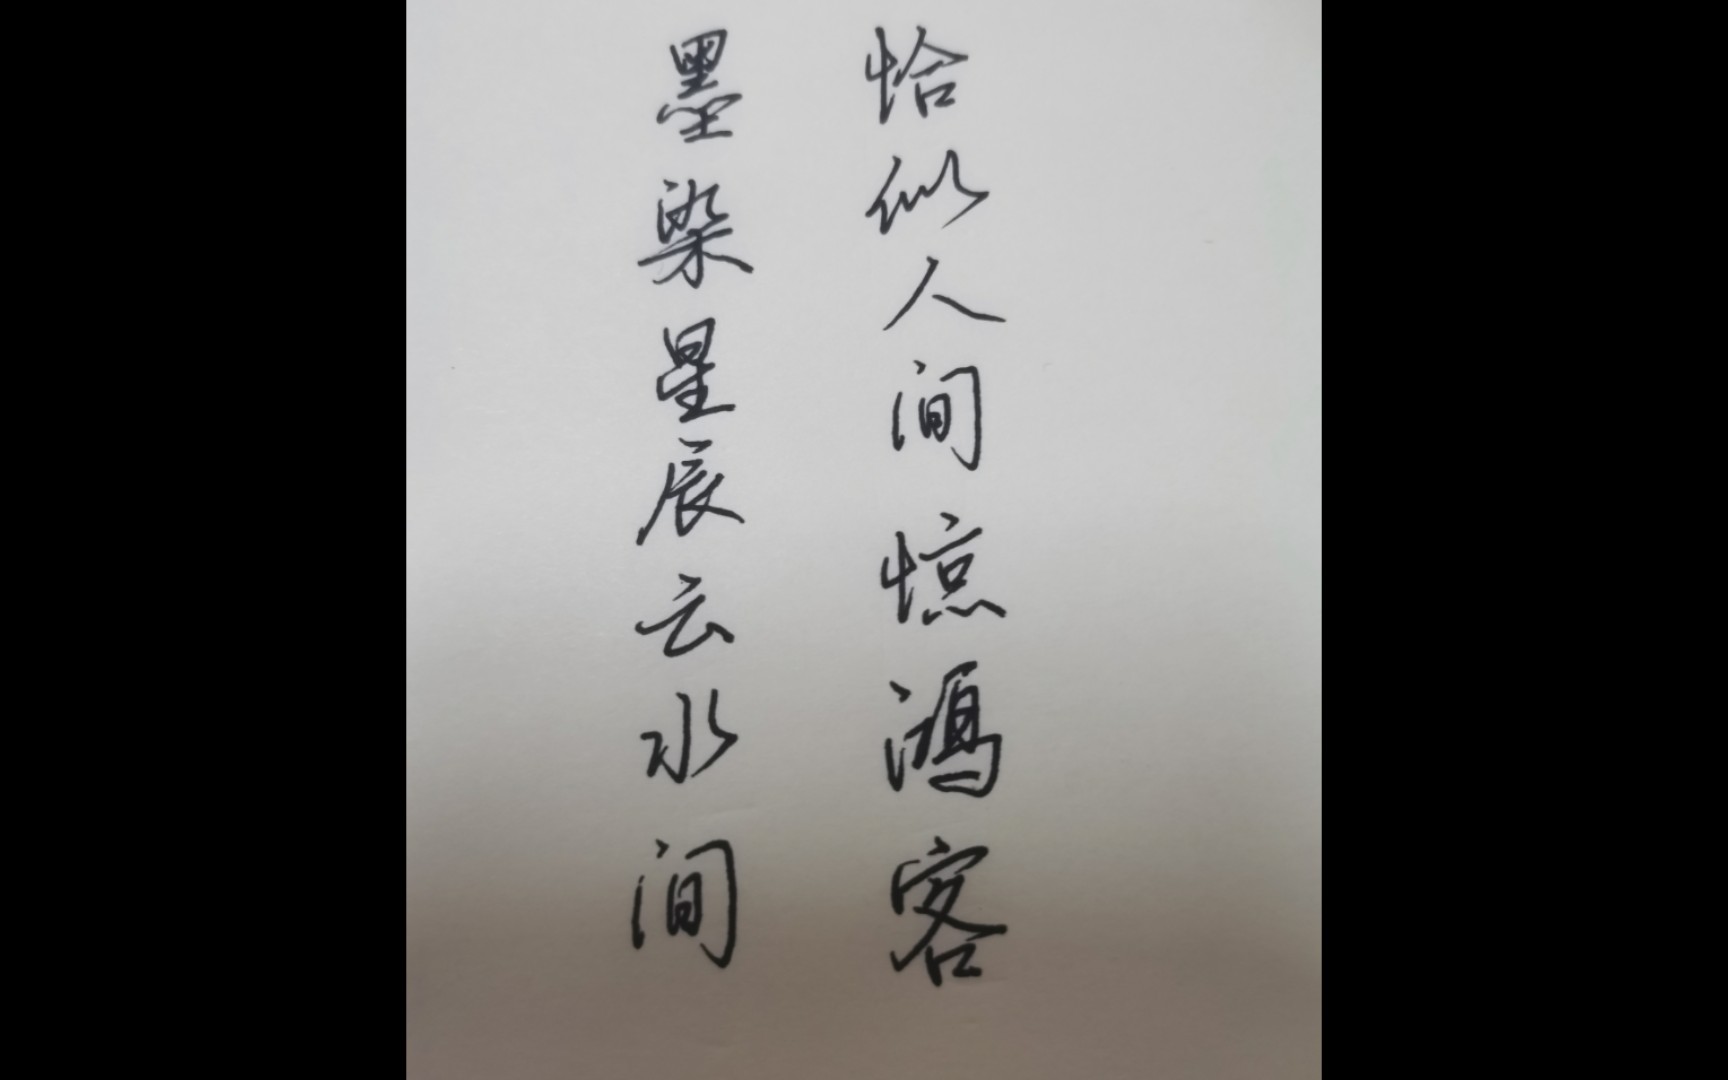 恰似人间惊鸿客
墨染星辰云水间